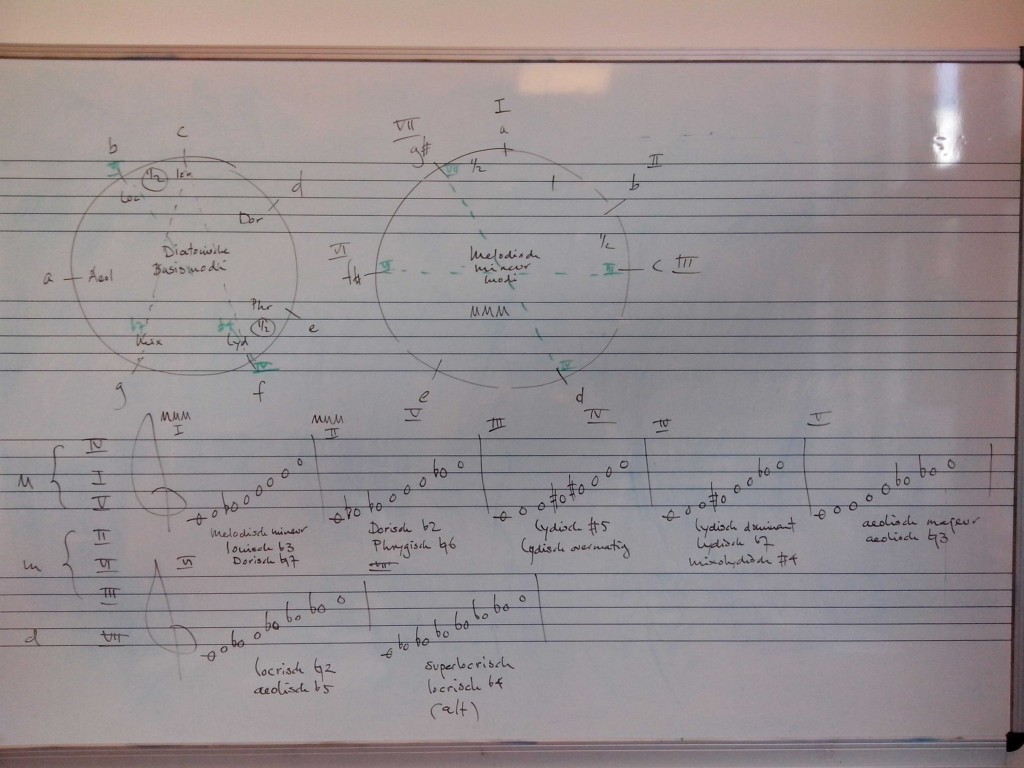 c
b
Loc
½
Ion
d
Dor
Diatonische
Basismodi
a
Aeol
Phr
½
e
b7
Mix
Lyd
IV
g
f
I
a
VII
g#
VII
½
II
b
1
½
VI
f#
VI
Melodisch
mineur
modi
MMM
III
c III
IV
e
V
d
IV
M
IV
I
V
MMM
I
MMM
II
III
IV
V
melodisch mineur
Ionisch b3
Dorisch ♮7
Dorisch b2
Phrygisch ♮6
Lydisch #5
Lydisch overmatig
Lydisch dominant
Lydisch b7
mixolydisch #4
aeolisch majeur
aeolisch ♮3
m
II
VI
III
d
VII
VI
VII
locrisch ♮2
aeolisch b5
superlocrisch
locrisch b4
(alt)